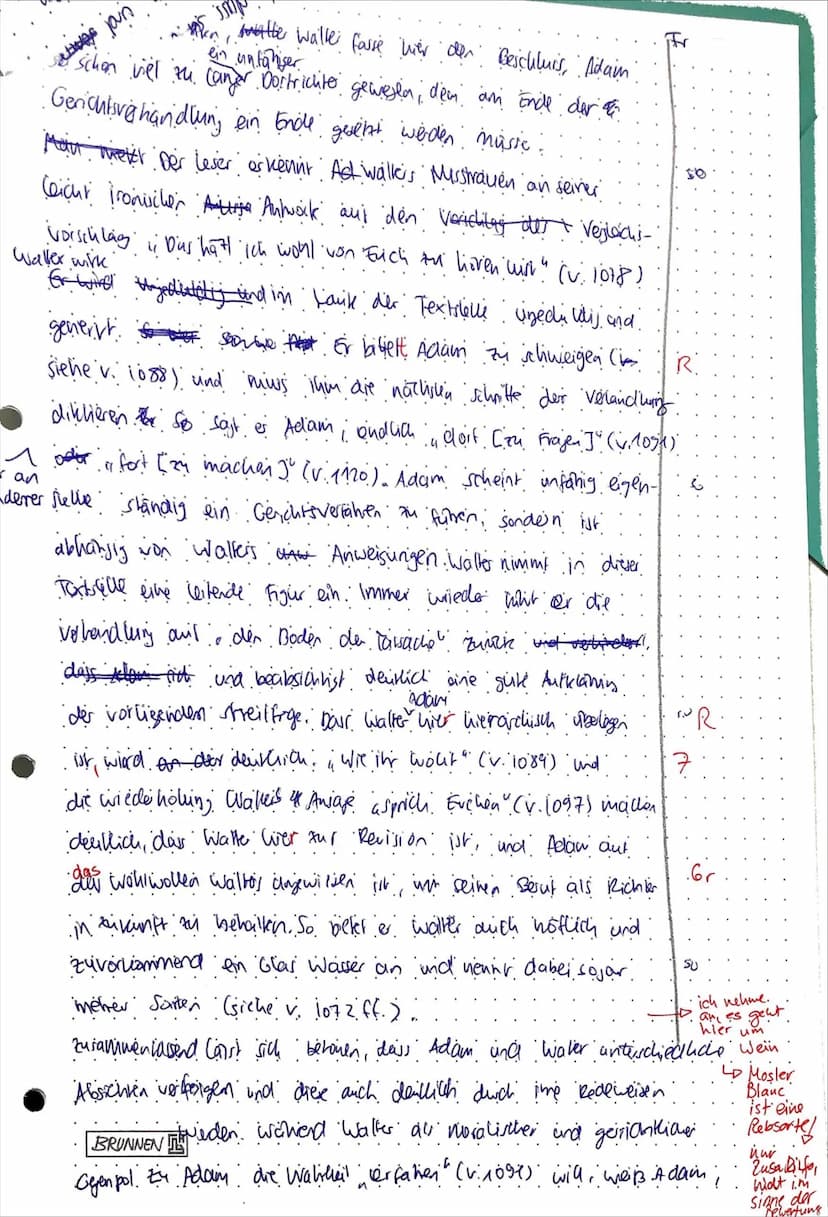 Walter fasse hier den Beschluss, Adam
sei schon viel zu lange ein unfähiger Dorfrichter gewesen, dem am Ende der
Gerichtsverhandlung ein Ende gesetzt werden müsse.
Der Leser erkennt Walters Misstrauen an seiner
leicht ironischen Antwort auf den Vergleichs-
vorschlag „Das hätt ich wohl von Euch zu hören Lust“ (V. 1078)
Walter wirk im Laufe der Textstelle ungeduldig und
genervt. Er bittet Adam zu schweigen (
siehe V. 1088) und muss ihm die nächsten Schritte der Verhandlung
diktieren So sagt er Adam, endlich „dort [zu Fragen]“ (V. 1091)
er an anderer Stelle „fort [zu machen]“ (V. 1120). Adam scheint unfähig eigen-
ständig ein Gerichtsverfahren zu führen, sondern ist
abhängig von Walters Anweisungen. Walter nimmt in dieser
Textstelle eine leitende Figur ein. Immer wieder führt er die
Verhandlung auf „den Boden der Tatsache“ zurück
und beabsichtigt deutlich eine gute Aufklärung
der vorliegenden Streitfrage. Dass Walter Adam hier hierarchisch überlegen
ist, wird deutlich. „Wie ihr wollt“ (V. 1089) und
die Wiederholung Walters Ansage „sprich Evchen“ (V. 1097) machen
deutlich, dass Walter hier zur Revision ist, und Adam auf
das Wohlwollen Walters angewiesen ist, um seinen Beruf als Richter
in Zukunft zu behalten. So bietet er Walter auch höflich und
zuvorkommend ein Glas Wasser an und nennt dabei sogar
mehrer Sorten (siehe V. 1072 ff.).
Zusammenfassend lässt sich betonen, dass Adam und Walter unterschiedliche
Absichten verfolgen und diese auch deutlich durch ihre Redeweisen
werden. Während Walter als moralischer und gerichtlicher
Gegenpol zu Adam die Wahrheit „erfahren“ (V. 1092) will, weiß Adam,
BRUNNEN
R
R
7
Gr
ich nehme
an, es geht
hier um
Wein
↳ Mosler
Blanc
ist eine
Rebsorte!
nur
Zusatzinfo,
nicht im
Sinne der
Bewertung